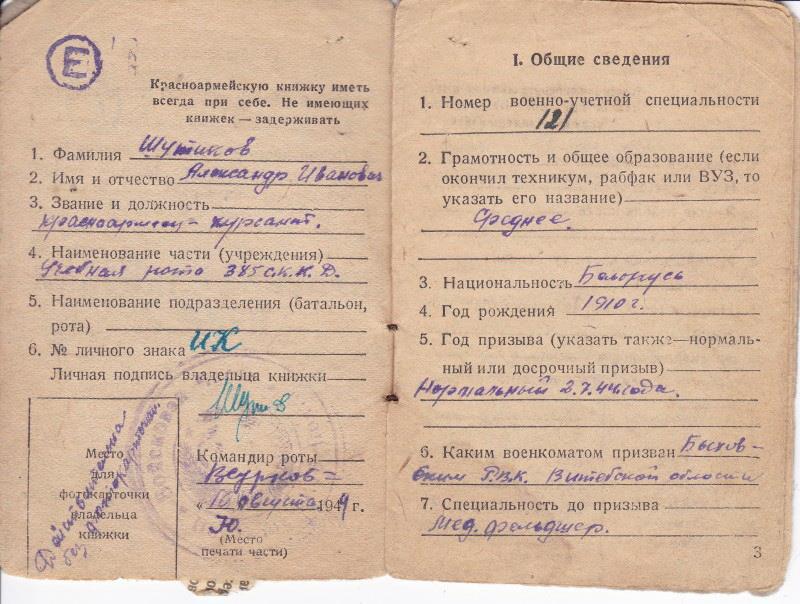 Е
Красноармейскую книжку иметь
всегда при себе. Не имеющих
книжек — задерживать
1. Фамилия Шутиков
2. Имя и отчество Александр Иванович
3. Звание и должность
красноармеец – курсант.
4. Наименование части (учреждения)
Учебная рота 385 с.к.К.Д.
5. Наименование подразделения (батальон,
рота)
6. № личного знака ИК
Личная подпись владельца книжки
Место
для
фотокарточки
владельца
книжки
Действительна
без фотокарточки
Командир роты
„10" августа 1944 г.
(Место
печати части)
I. Общие сведения
1. Номер военно-учетной специальности
121
2. Грамотность и общее образование (если
окончил техникум, рабфак или ВУЗ, то
указать его название)
Среднее.
3. Национальность Белорусь
4. Год рождения 1910 г.
5. Год призыва (указать также—нормаль-
ный или досрочный призыв)
Нормальный 2.7.44 года.
6. Каким военкоматом призван Быхов-
ским Р.В.К. Витебской области
7. Специальность до призыва
Мед. фельдшер.
3